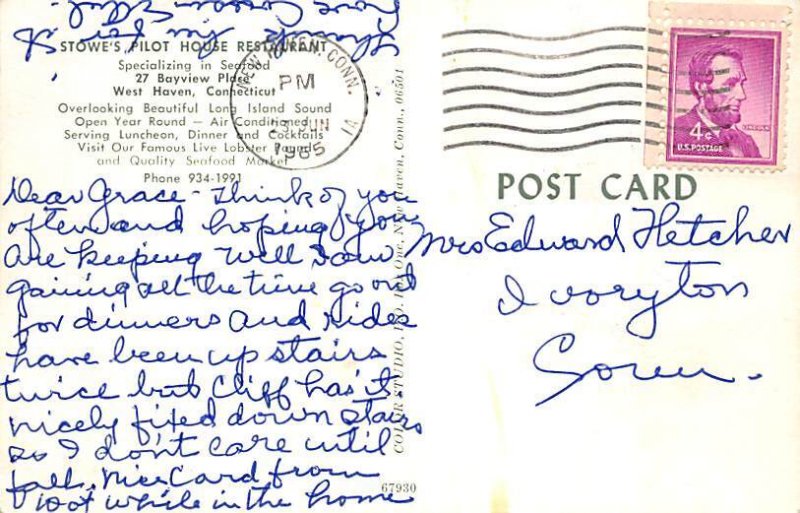 STOWE'S PILOT HOUSE RESTAURANT
Specializing in Seafood
27 Bayview Place
West Haven, Connecticut
Overlooking Beautiful Long Island Sound
Open Year Round — Air Conditioned
Serving Luncheon, Dinner and Cocktails
Visit Our Famous Live Lobster Pound
and Quality Seafood Market
Phone 934-1991
Dear Grace - Think of you
often and hoping you
are keeping well I am
gaining all the time go out
for dinners and rides
have been up stairs
twice but Cliff has it
nicely fixed down stairs
so I don't care until
fall. Nice Card from
while in the home
COLOR STUDIO, New Haven, Conn., 06501
67930
NEW HAVEN, CONN.
PM
JUN
1965
1A
4¢
LINCOLN
U.S. POSTAGE
POST CARD
Mrs Edward Fletcher
Ivoryton
Conn.